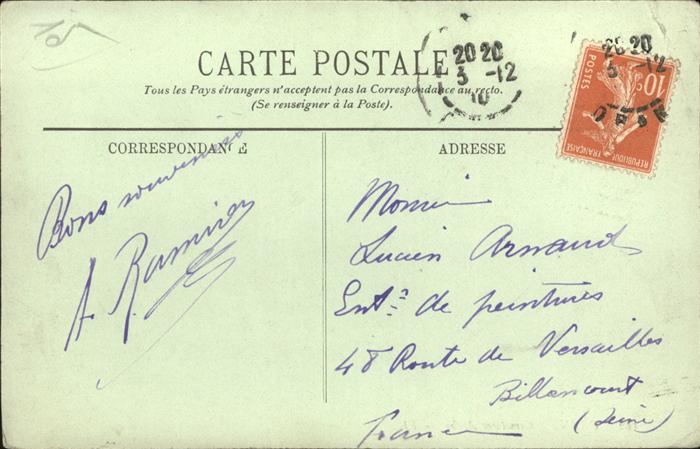 10
CARTE POSTALE
Tous les Pays étrangers n'acceptent pas la Correspondance au recto.
(Se renseigner à la Poste).
20 20
3 -12
10
20 20
3 -12
10c
POSTES
REPUBLIQUE FRANÇAISE
CORRESPONDANCE
Bons souvenirs
A. Ramier
ADRESSE
Lucien Arnaud
Entr. de peintures
48 Route de Versailles
Billancourt
(Seine)
France